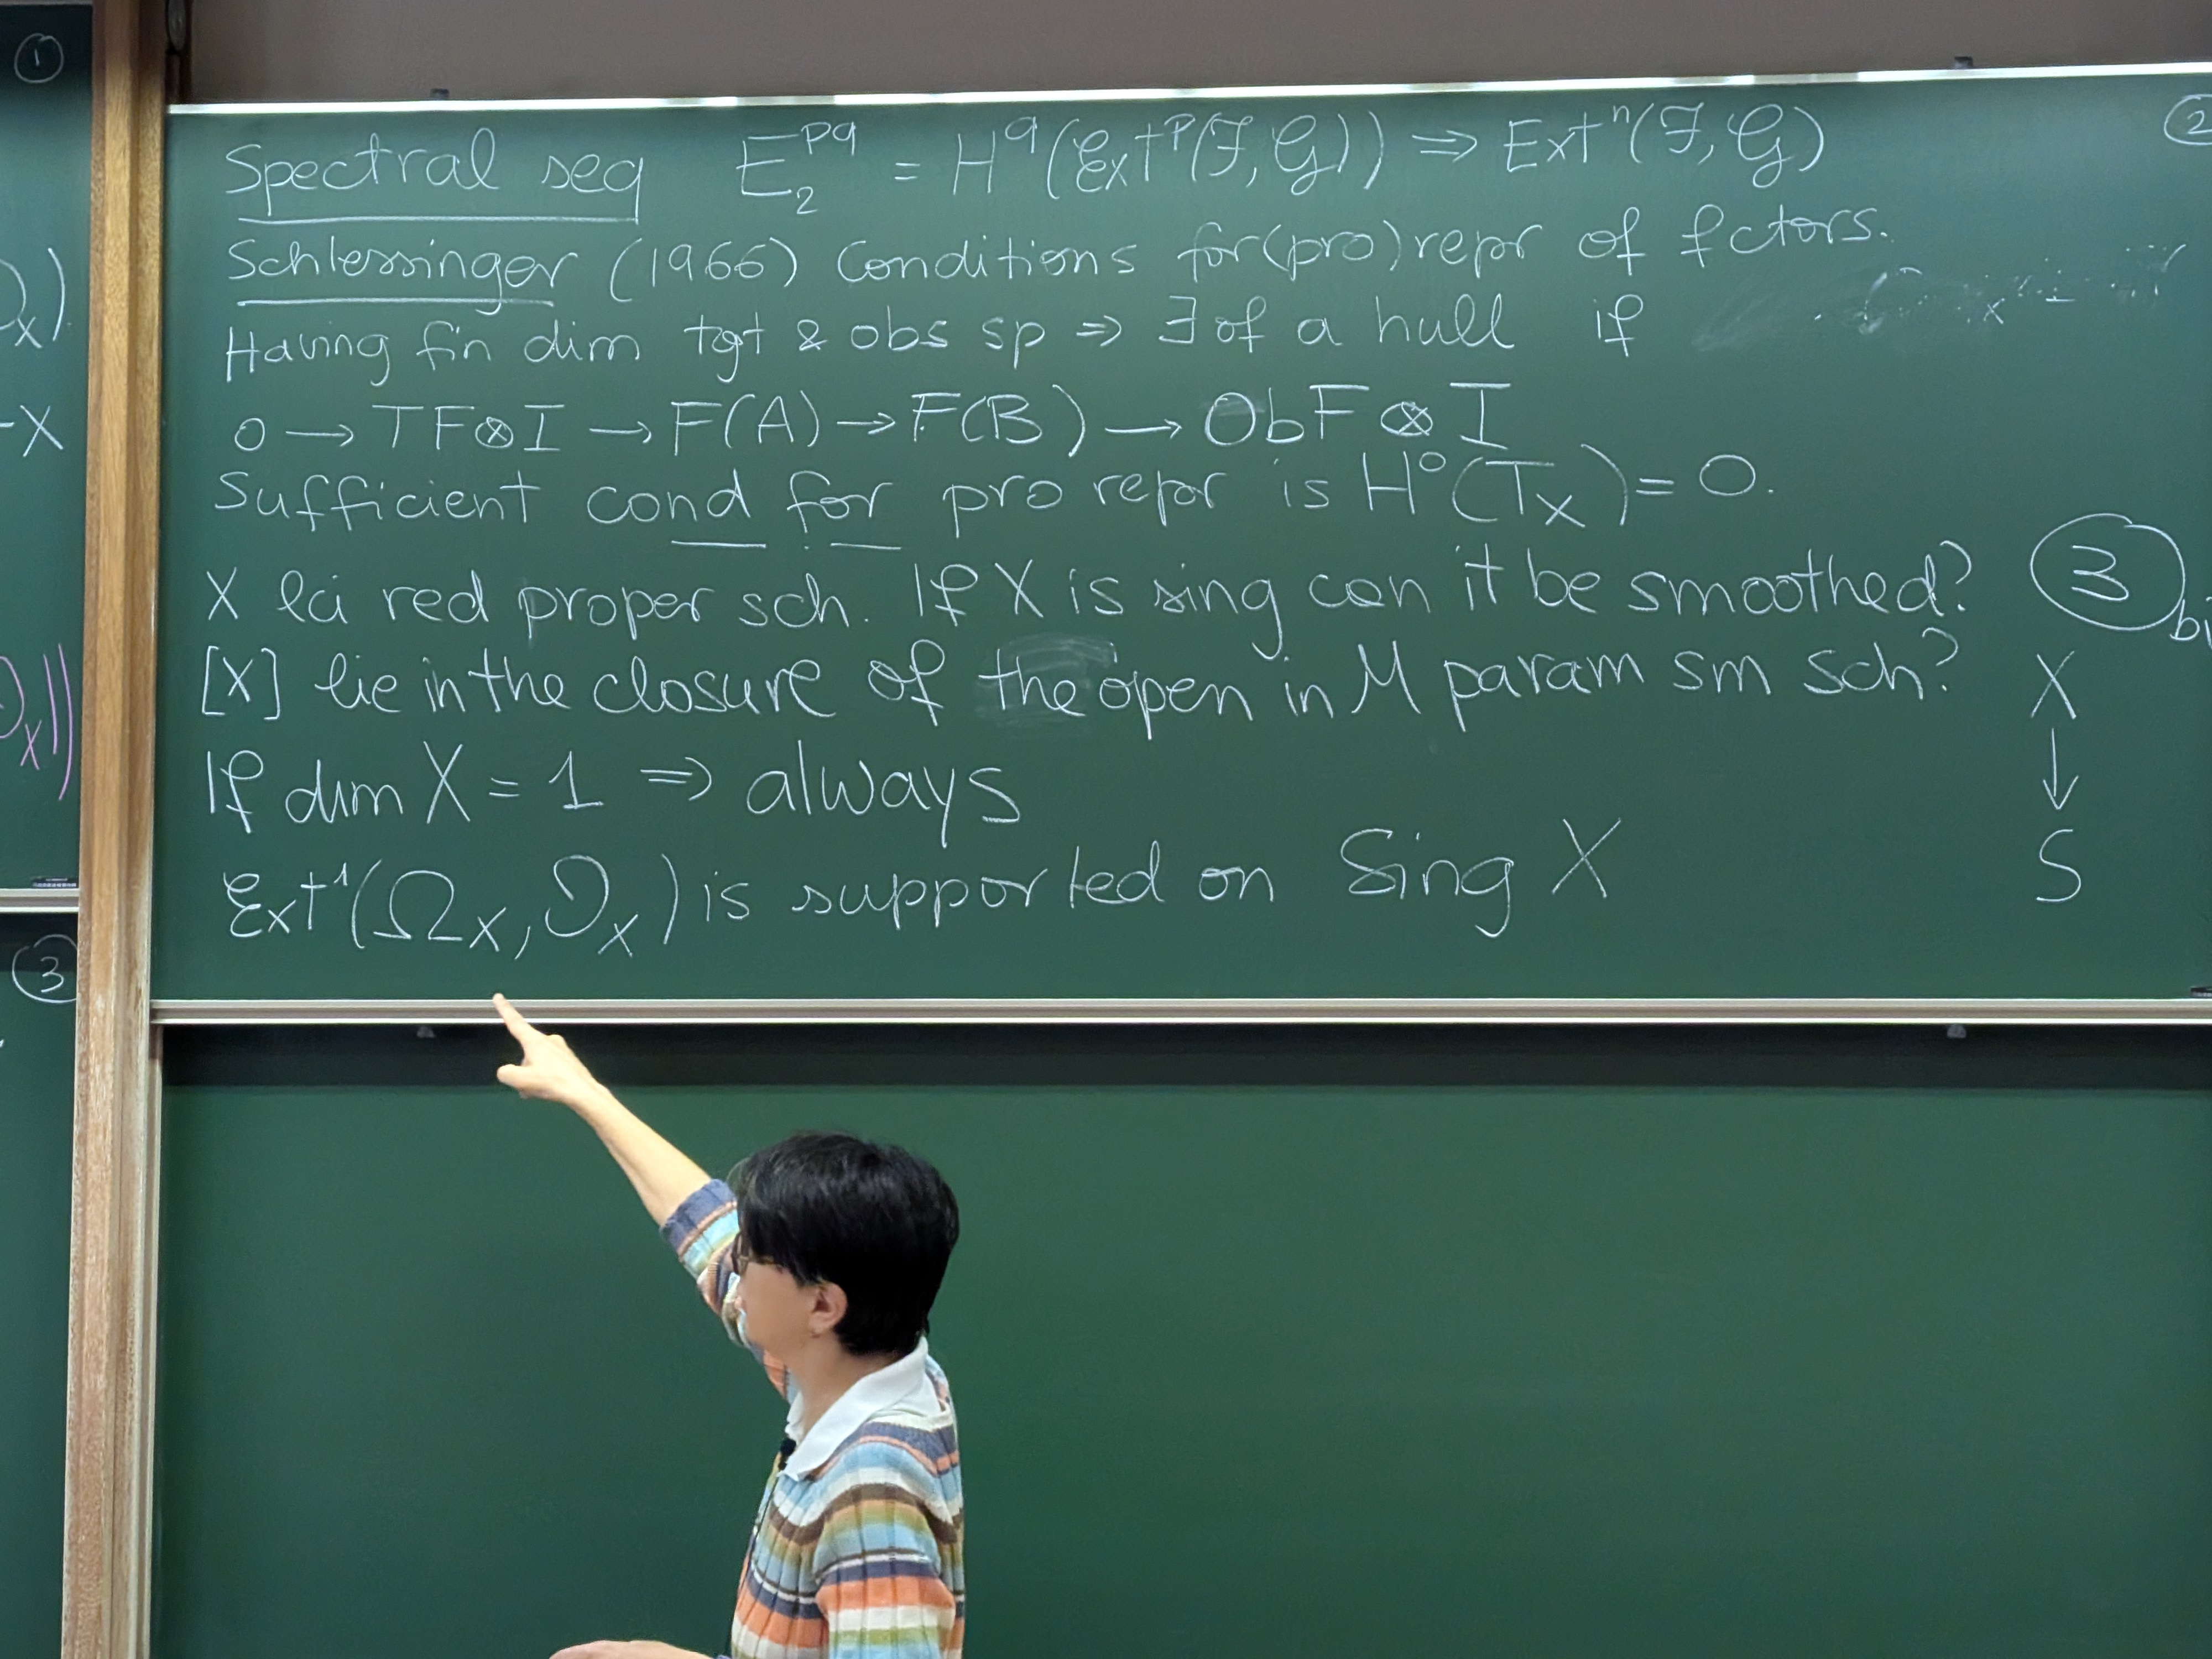 ①
②
Spectral seq E₂^{pq} = H^q(Ext^p(F, G)) ⇒ Ext^n(F, G)
Schlessinger (1966) Conditions for (pro)repr of fctors.
Having fin dim tgt & obs sp ⇒ ∃ of a hull if
0 → TF⊗I → F(A) → F(B) → ObF⊗I
Sufficient cond for pro repr is H⁰(T_X) = 0.
X lci red proper sch. If X is sing can it be smoothed?
[X] lie in the closure of the open in M param sm sch?
If dim X = 1 ⇒ always
Ext¹(Ω_X, O_X) is supported on Sing X
③
X
↓
S
_X)
-X
O_X))
③